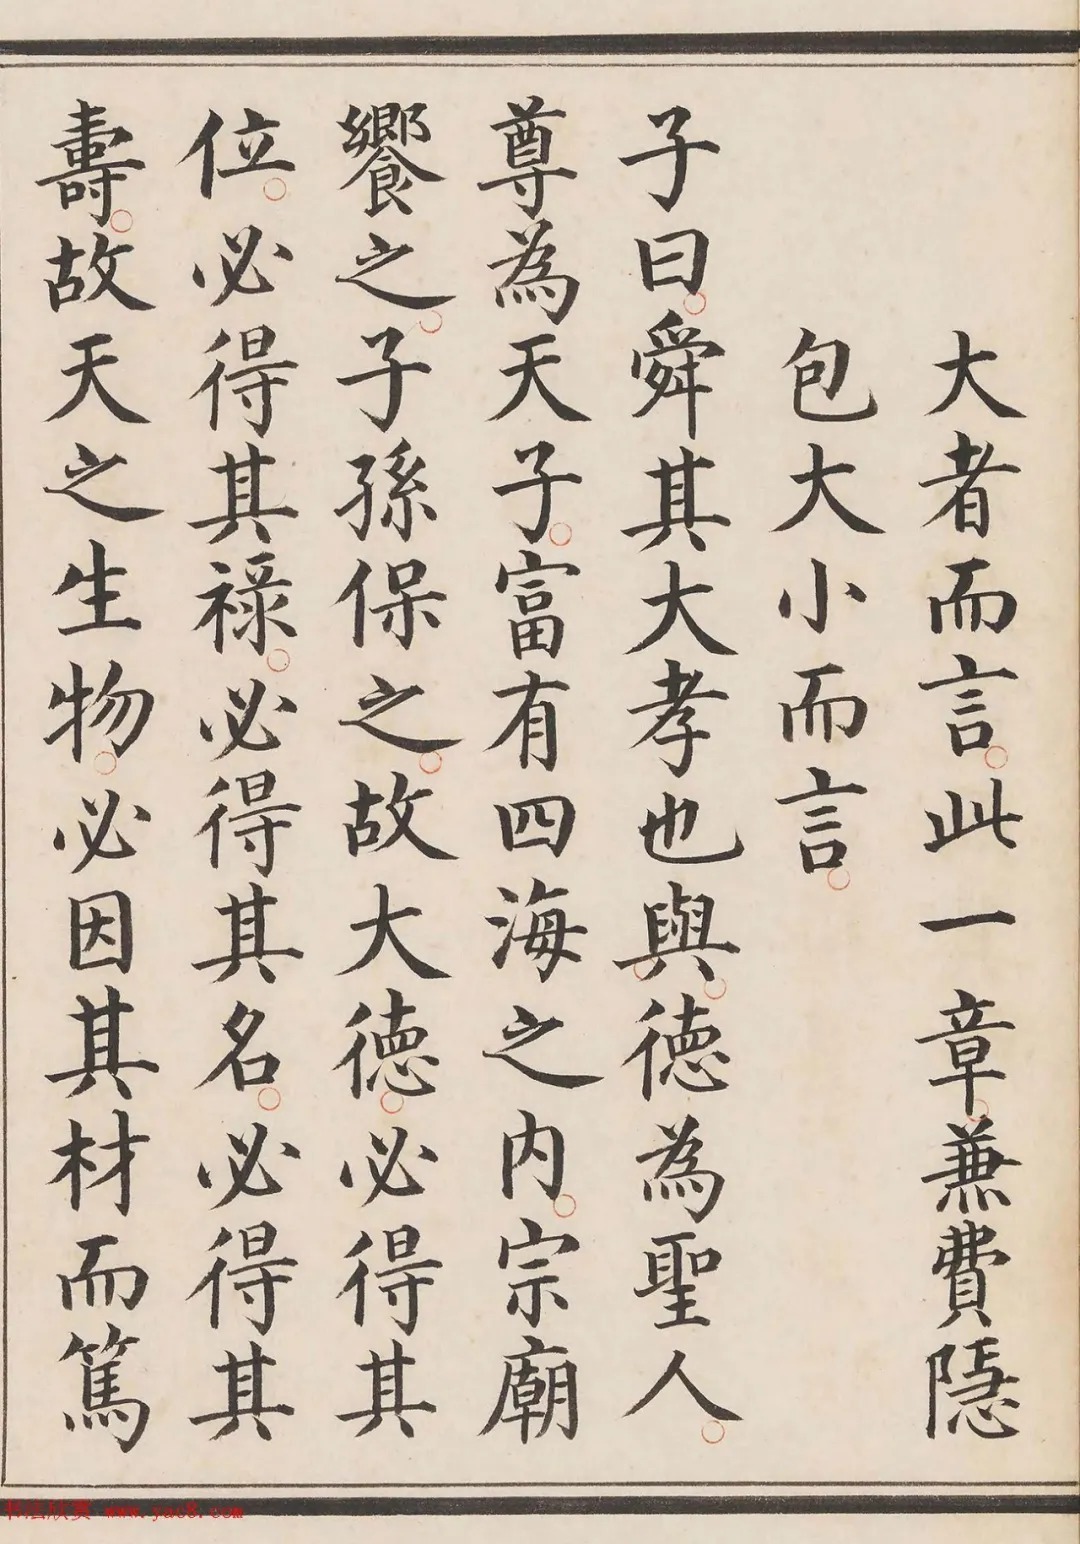 大者而言。此一章。兼費隱
包大小而言。
子曰。舜其大孝也與。德為聖人。
尊為天子。富有四海之內。宗廟
饗之。子孫保之。故大德。必得其
位。必得其祿。必得其名。必得其
壽。故天之生物。必因其材而篤
书法欣赏 www.yac8.com